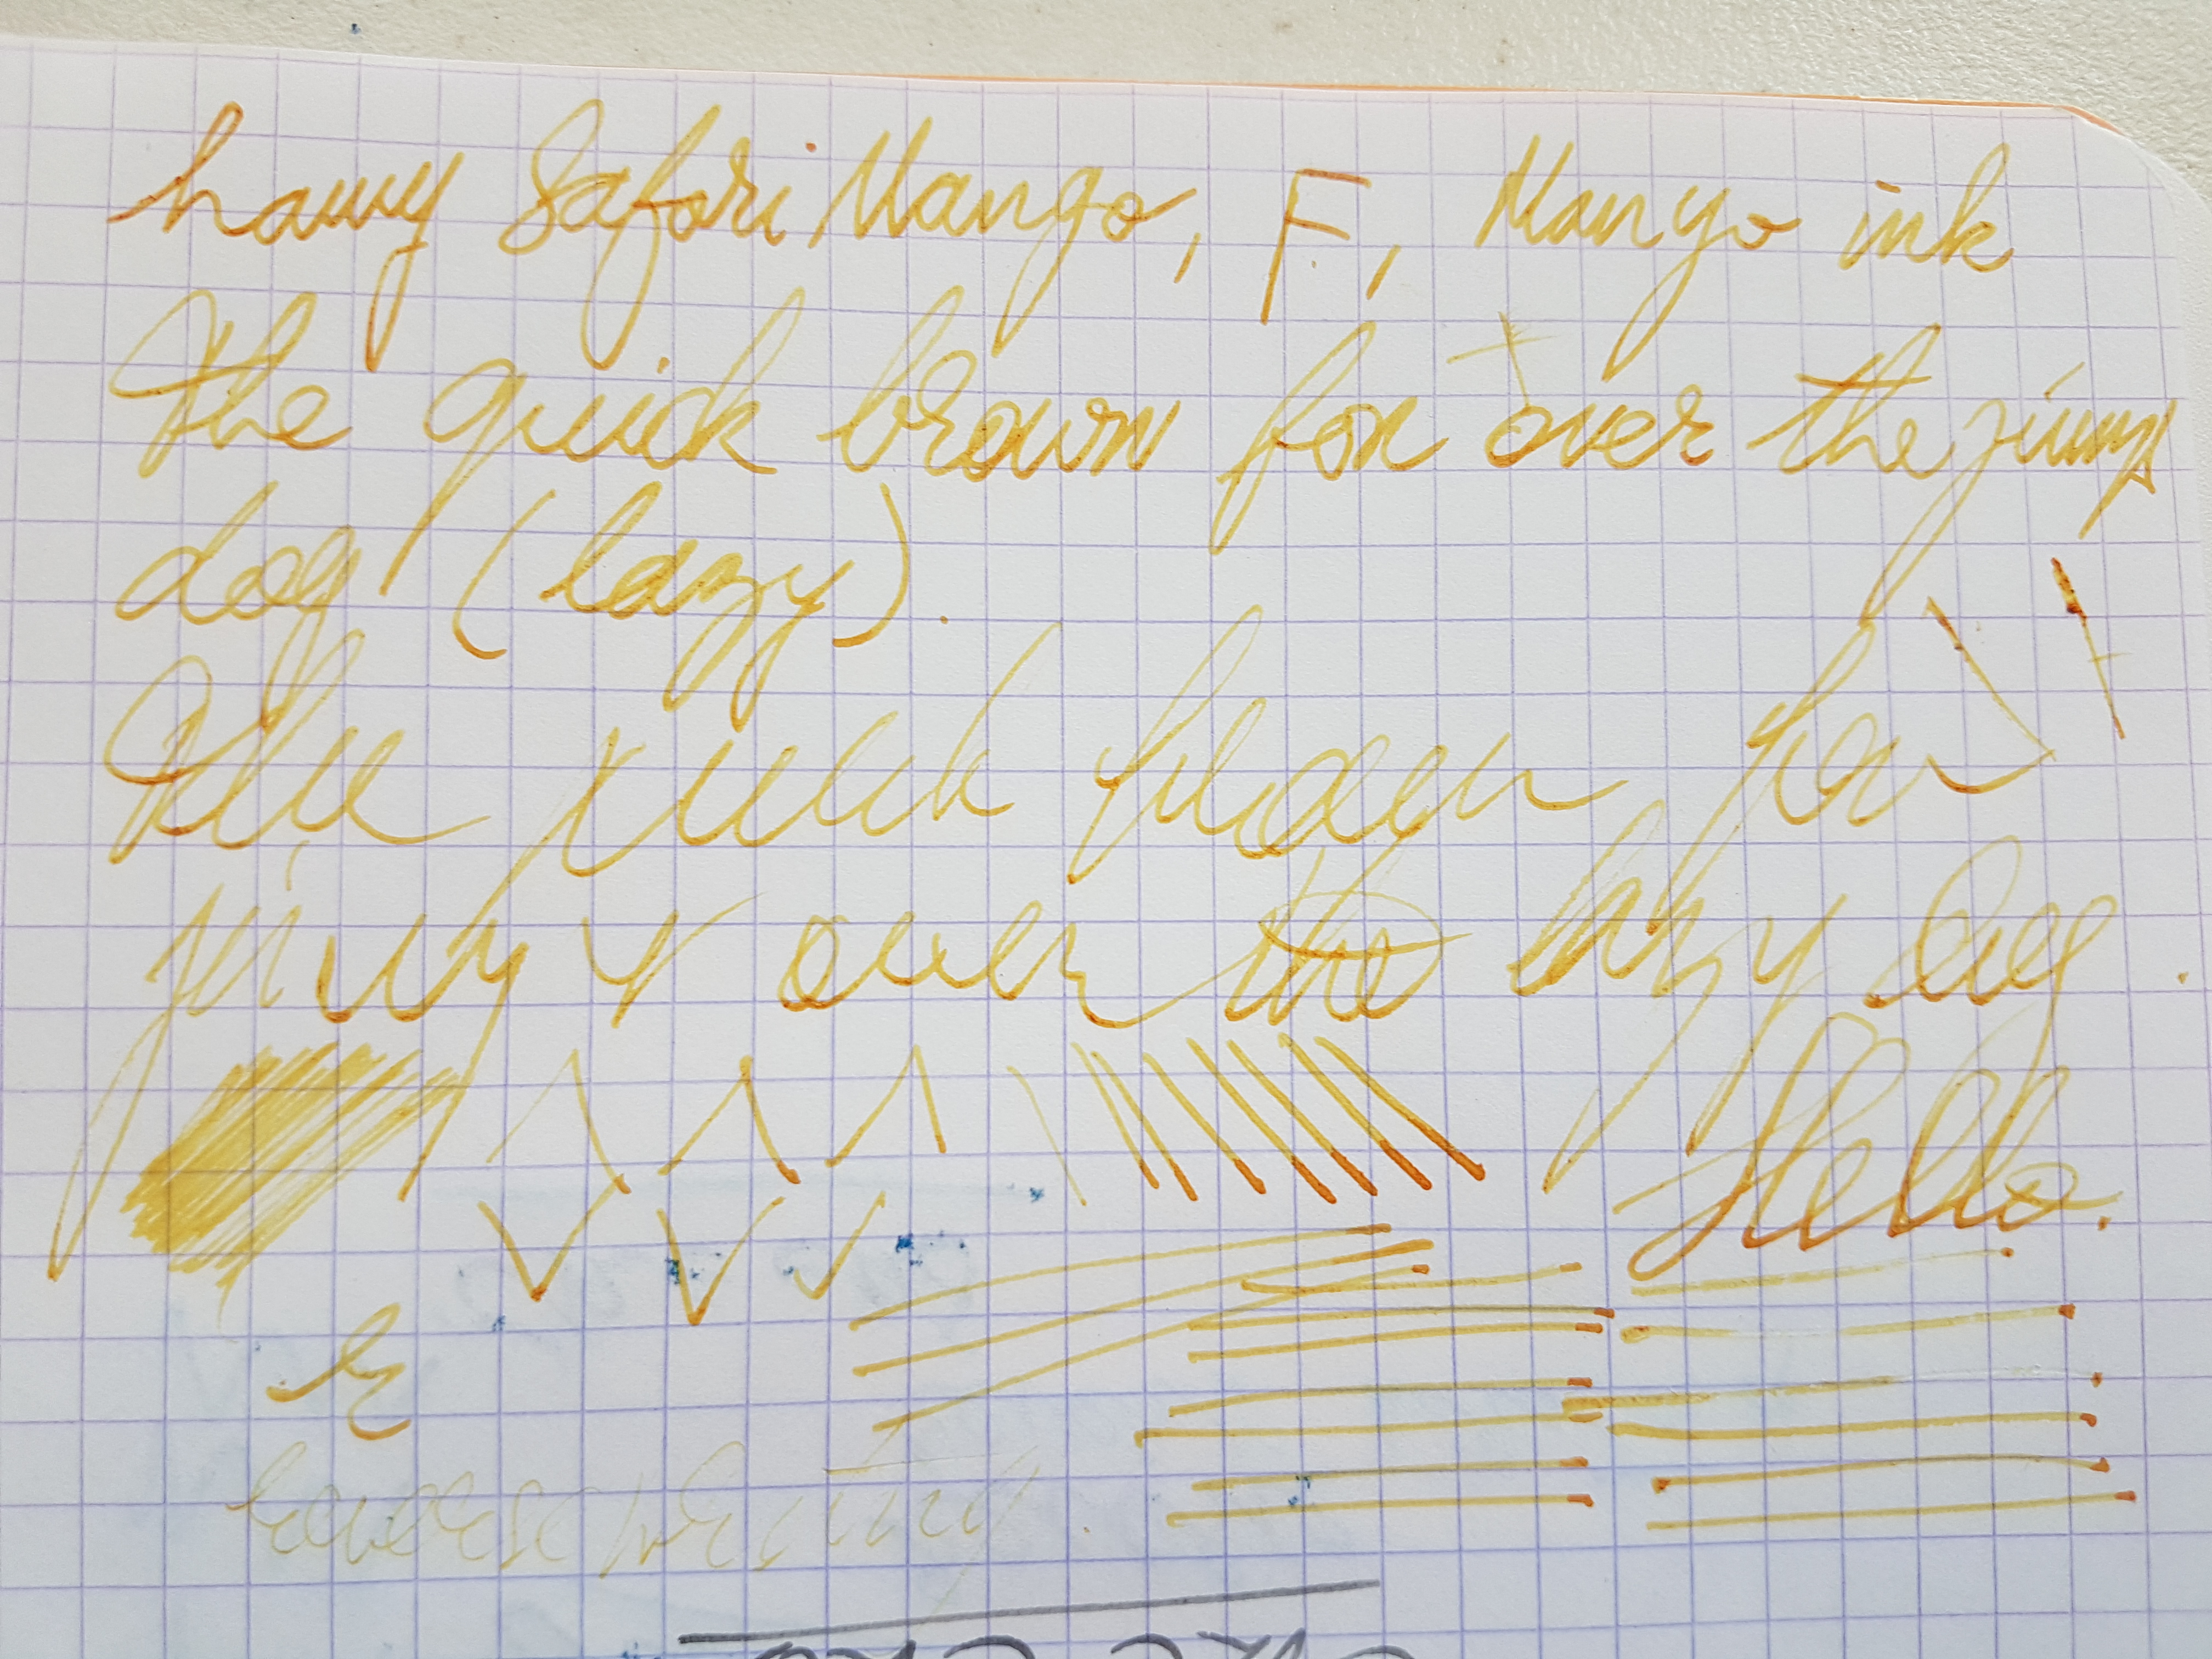 Lamy Safari Mango, F, Mango ink
The quick brown fox over the jump
dog (lazy).
The quick brown fox
jump over the lazy dog.
Hello.
reverse writing